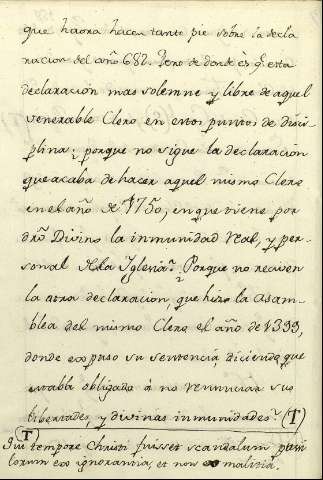 que haora hacen tanto pie sobre la decla
racion del año 682. Pero de donde es qe. esta
declaracion mas solemne y libre de aquel
venerable Clero en estos puntos de disci-
plina; porque no sigue la declaracion
que acaba de hacer aquel mismo Clero
en el año de 1750, en que viene por
dro. Divino la inmunidad real, y per-
sonal de la Yglesia? Porque no reciven
la otra declaracion, que hizo la Asam-
blea del mismo Clero el año de 1333,
donde expuso su sentencia, diciendo que
estaba obligado á no renunciar sus
libertades, y divinas inmunidades? (T)
(T) Qui tempore Christi fuisset scandalum pusi
lorum ex ignorantia, et non ex malitia.